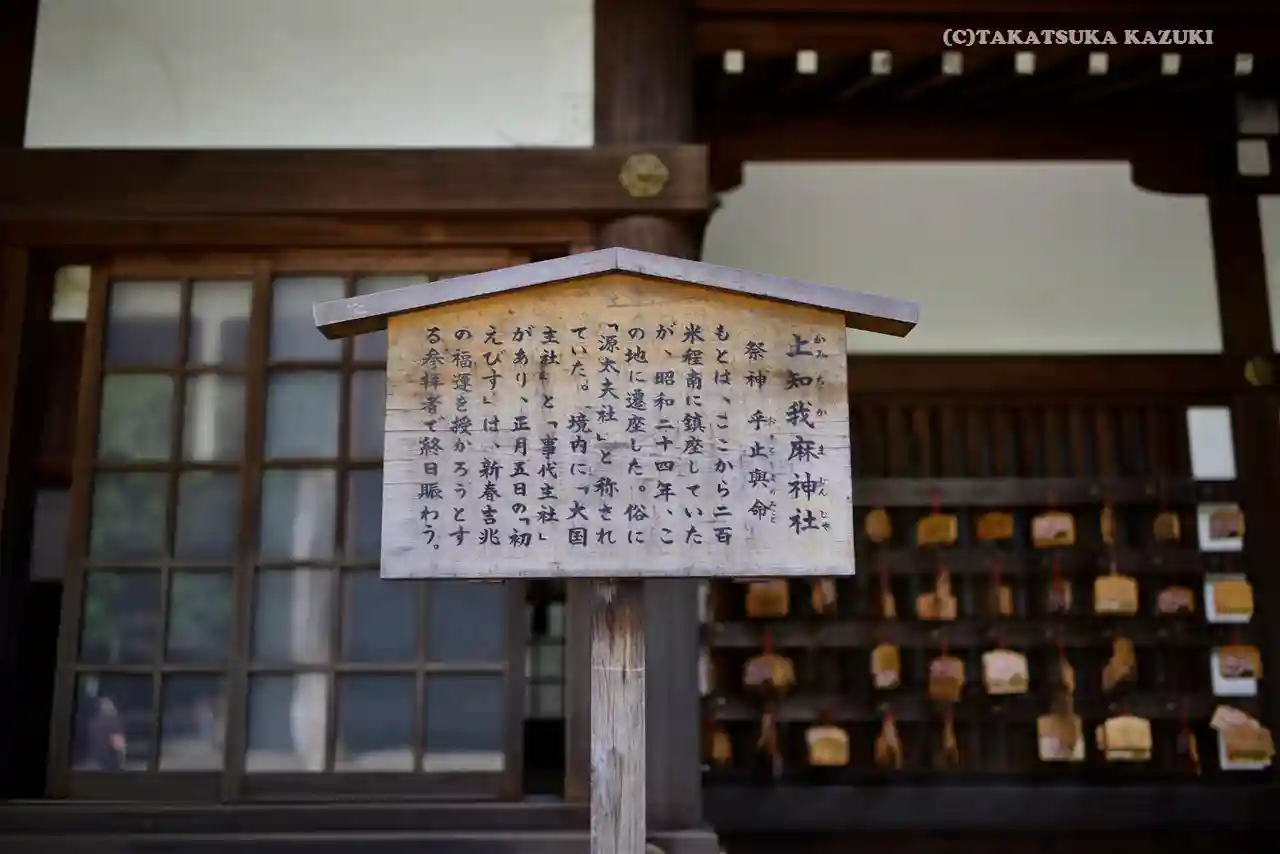 (C)TAKATSUKA KAZUKI
上知我麻神社
かみちかまじんじゃ
祭神 乎止與命
おとよのみこと
もとは、ここから二百
米程南に鎮座していた
が、昭和二十四年、こ
の地に遷座した。俗に
「源太夫社」と称され
ていた。境内に「大国
主社」と「事代主社」
があり、正月五日の「初
えびす」は、新春吉兆
の福運を授かろうとす
る参拝者で終日賑わう。